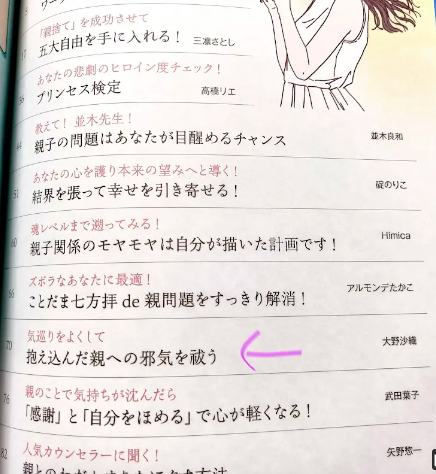 「親捨て」を成功させて
五大自由を手に入れる！ 三凛さとし
あなたの悲劇のヒロイン度チェック！
プリンセス検定 高橋リエ
教えて！ 並木先生！
親子の問題はあなたが目醒めるチャンス 並木良和
あなたの心を護り本来の望みへと導く！
結界を張って幸せを引き寄せる！ 碇のりこ
魂レベルまで遡ってみる！
60 親子関係のモヤモヤは自分が描いた計画です！ Himica
ズボラなあなたに最適！
66 ことだま七方拝 de 親問題をすっきり解消！ アルモンデたかこ
気巡りをよくして
70 抱え込んだ親への邪気を祓う 大野沙織
親のことで気持ちが沈んだら
76 「感謝」と「自分をほめる」で心が軽くなる！ 武田葉子
人気カウンセラーに聞く！
82 矢野惣一